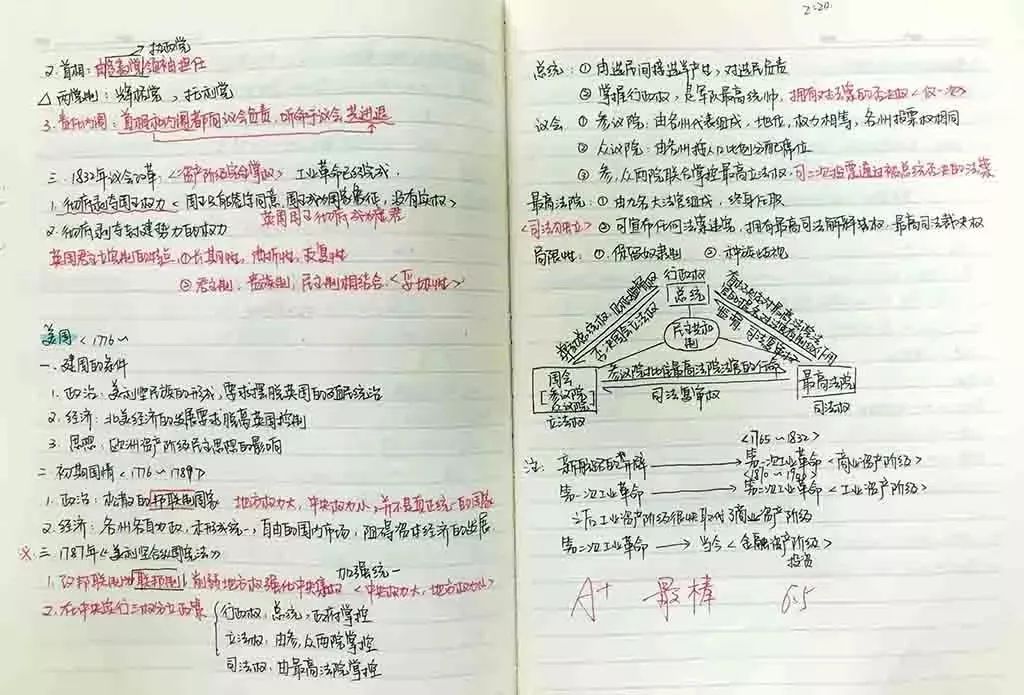 →执政党
2.首相：由多数党领袖担任
△两党制：辉格党、托利党
3.责任内阁：首相和内阁都向议会负责，听命于议会 共进退
三.1832年议会改革：<资产阶级完全掌权> 工业革命已经完成.
1.彻底剥夺国王权力<国王只有签字同意，国王成为国家象征，没有实权>
英国国王彻底成为虚君
2.彻底剥夺封建势力的权力
英国君主立宪制的特点 ①长期性，曲折性，反复性
②君主制，贵族制，民主制相结合.<妥协性>
美国<1776~
一.建国的条件
1.政治：美利坚民族的形成，要求摆脱英国的殖民统治
2.经济：北美经济的发展要求脱离英国控制
3.思想：欧洲资产阶级民主思想的影响
二.初期国情<1776~1789>
1.政治：松散的邦联制国家 地方权力大，中央权力小，并不是真正统一的国家
2.经济：各州各自为政，未形成统一、自由的国内市场，阻碍资本经济的发展
※三.1787年《美利坚合众国宪法》
加强统一
1.改邦联制为联邦制，削弱地方权强化中央集权<中央权力大，地方权力小>
2.在中央实行三权分立政策
行政权：总统，政府掌控
立法权：由参，众两院掌控
司法权：由最高法院掌控
2:20.
总统：①由选民间接选举产生，对选民负责
②掌握行政权，是军队最高统帅，拥有对法案的否决权<仅一次>
议会：①参议院：由各州代表组成，地位，权力相等，各州投票权相同
②众议院：由各州按人口比例分配席位
③参，众两院联合掌控最高立法权.可二次投票通过被总统否决的法案
最高法院：①由九名大法官组成，终身任职
<司法独立> ②可宣布任何法案违宪，拥有最高司法解释法权.最高司法裁决权
局限性：①保留奴隶制 ②种族歧视
行政权
总统
否决国会立法权
民主共和制
国会
[参议院
众议院]
立法权
参议院批准最高法院法官的任命
司法复审权
最高法院
司法权
<1765~1832>
注：新航路的开辟→第一次工业革命<商业资产阶级>
第一次工业革命→第二次工业革命<工业资产阶级>
之后工业资产阶级很快取代了商业资产阶级
第二次工业革命→当今<金融资产阶级>
投资
A+ 最棒 6.5